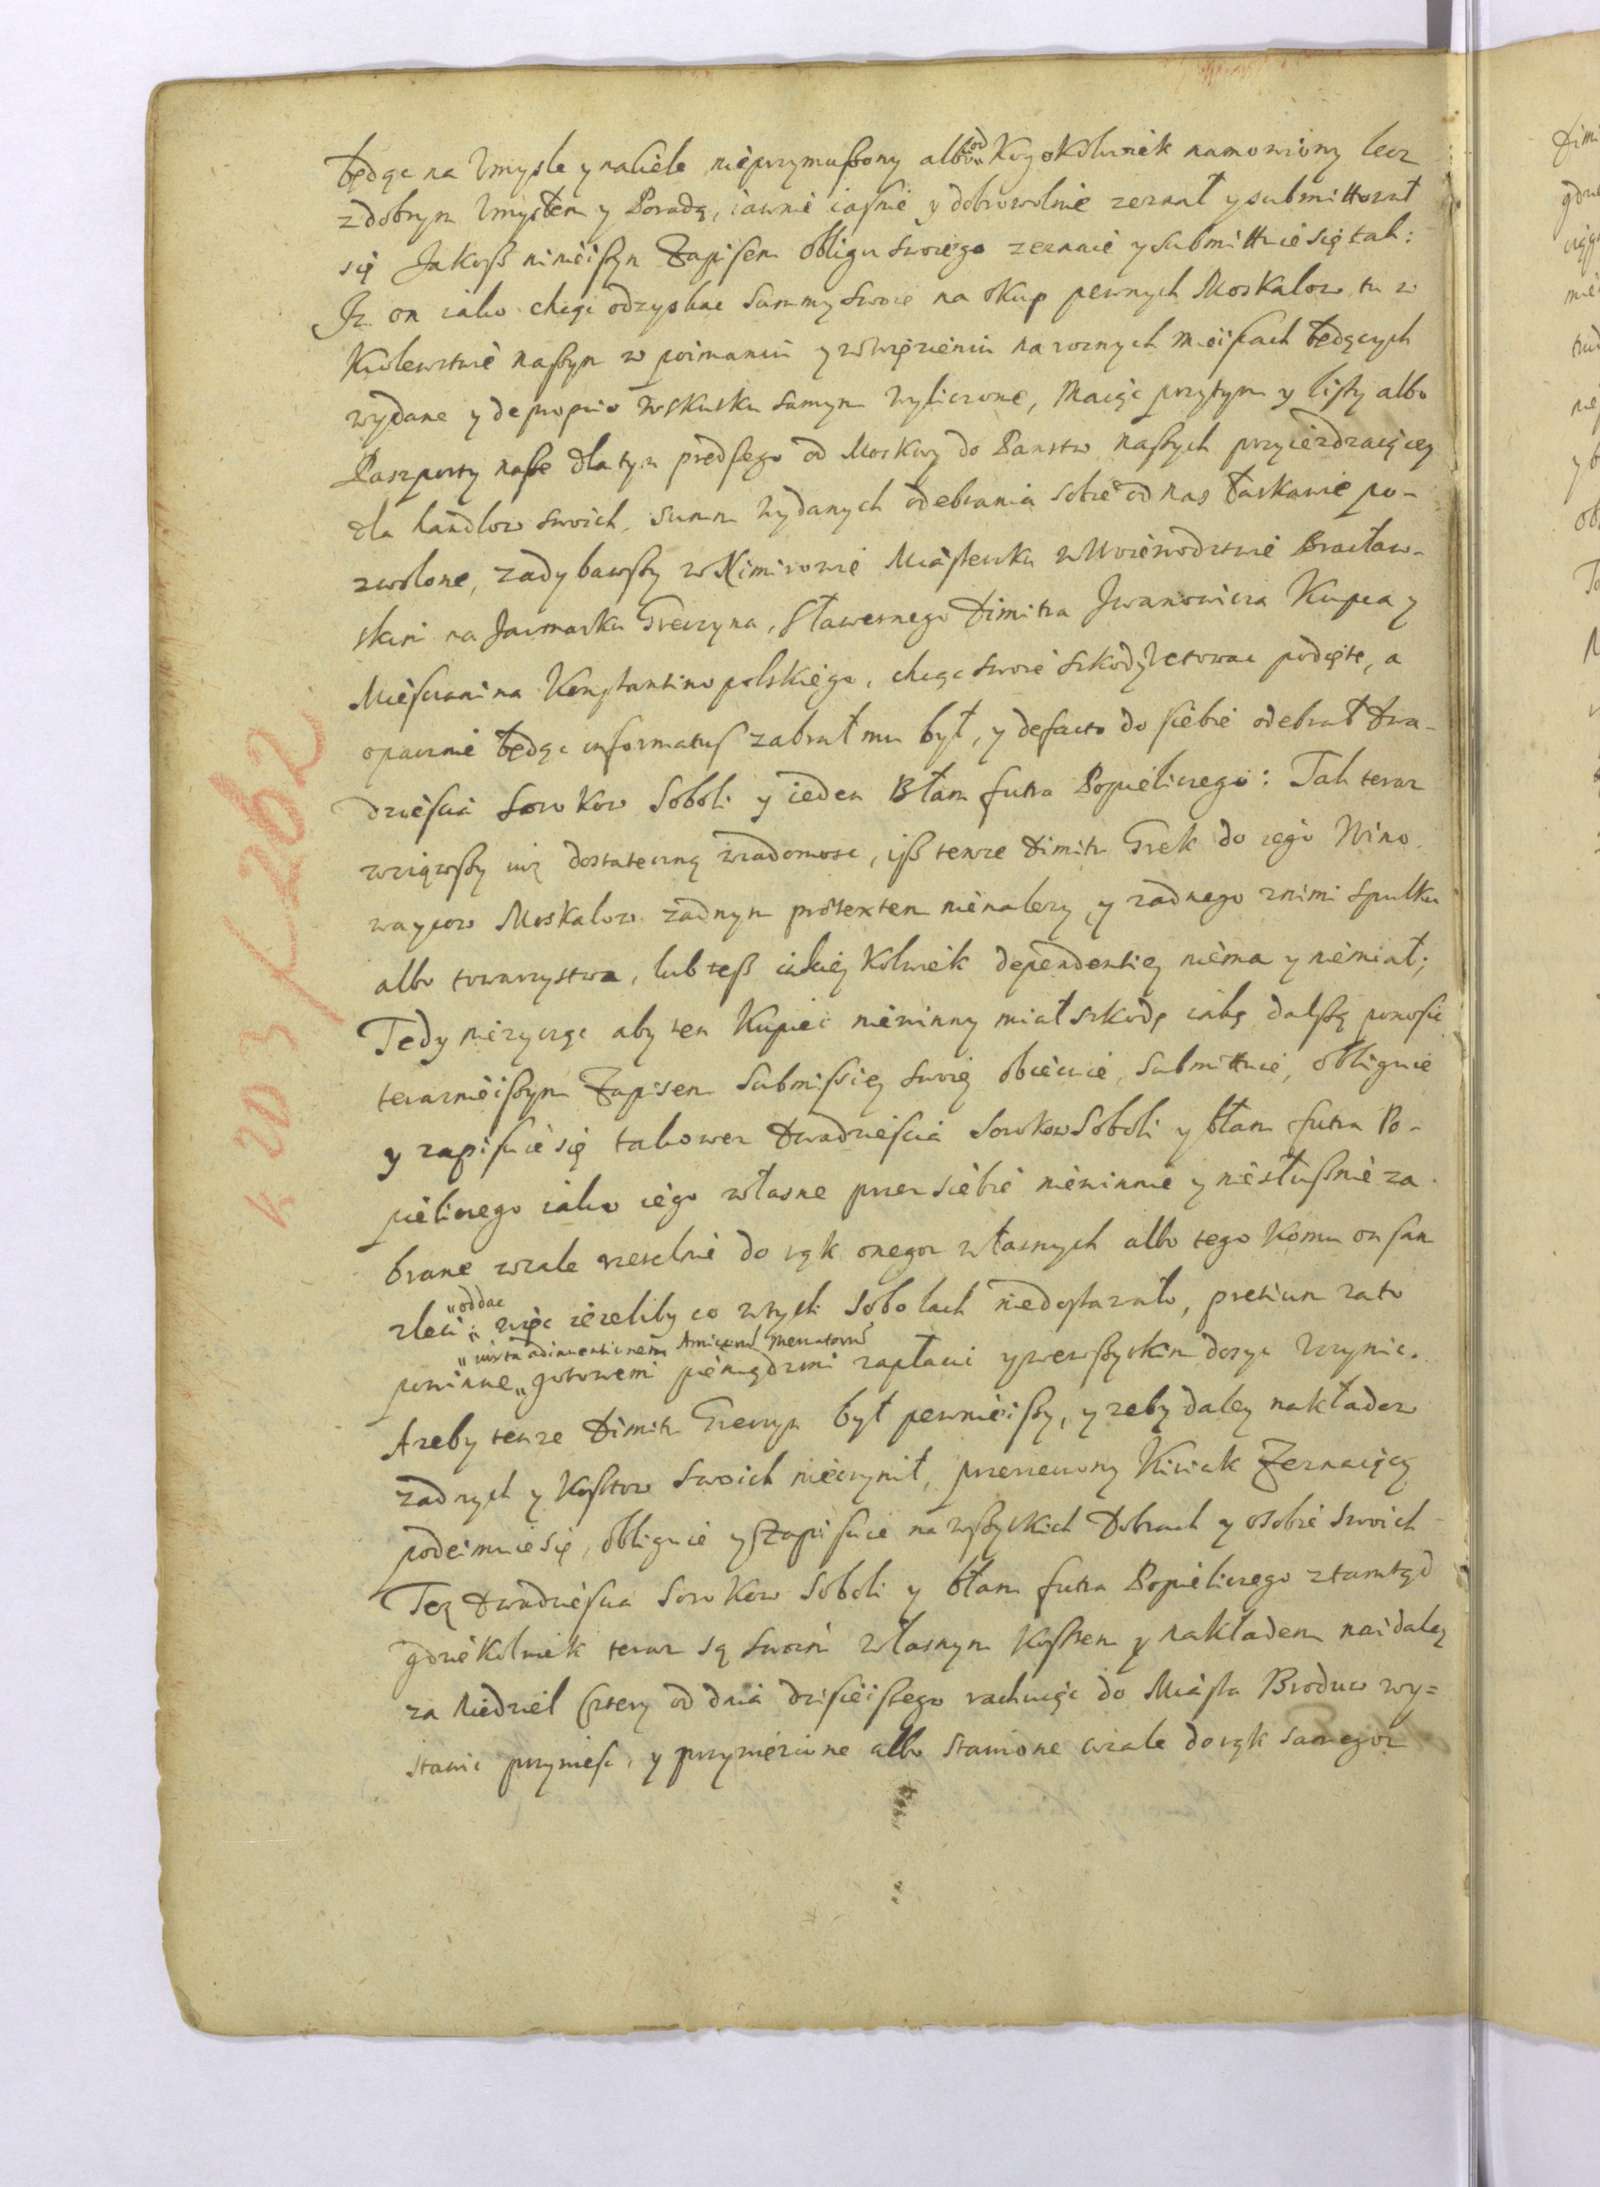 będąc na Vmysle y naciele nieprzymuszony albo od Kogokolwiek namowiony lecz
zdobrym Vmysłem y Poradą, iawnie iasnie y dobrowolnie zeznał ysubmittował
się Jakosz ninieiszym Zapisem obligu swoiego zeznaie ysubmittuie się tak:
Iz on iako chcąc odzyskac Summy swoie na okup pewnych Moskalow tu w
Krolewstwie naszym w poimaniu y wwięzieniu na roznych mieiscach będących
wydane y de proprio wskutku samym wyliczone, Maiąc przytym y listy albo
Paszporty nasze dla tym prędszego od Moskwy do Panstw naszych przyiezdzaiącey
dla handlow swoich, summ wydanych odebrania sobie od nas łaskawie po-
zwolone, zadybawszy w Nimirowie Miasteczku w Woiewodztwie Bracław-
skim na Jarmarku Greczyna, Sławetnego Dimitra Jwanowicza Kupca y
Miesczanina Konstantinopolskiego, chcąc swoie szkody Vetowac podięte, a
opacznie będąc informatus zabrał mu był, y defacto do siebie odebrał Dwa-
dziescia Sorokow Soboli y ieden Błam futra Popieliczego: Tak teraz
wziąwszy iuż dostateczną wiadomosc, isz tenze Dimitr Grek do iego Wino-
waycow Moskalow zadnym protextem nienalezy, y zadnego znimi spulku
albo towarzystwa, lub tesz iakiey kolwiek dependentiey niema y niemiał;
Tedy nieżycząc aby ten Kupiec niewinny miał szkodę iaką dalszą ponosic
teraznieiszym Zapisem Submissiey swoię obiecuie, submittuie, obliguie
y zapisuie się takowez Dwadziescia Sorokow Soboli y błam futra Po-
pieliczego iako iego własne przez siebie niewinnie y niesłusznie za-
brane wcale rzetelnie do rąk onegoz własnych albo tego komu on sam
zleci oddac, więc iezeliby co wtych Sobolach niedostawało, pretium zato
powinne iuxta adinuentionem Amicorum Mercatorum gotowemi pieniądzmi zapłacic ywewszytkim dosyc Vczynic.
Azeby tenze Dimitr Greczyn był pewnieiszy, y zeby daley nakładow
zadnych y kosztow swoich nieczynił, przerzeczony Kiriak Zeznaiący
podeimuie się, obliguie y Zapisuie na wszytkich Dobrach y osobie swoich
Też Dwadziescia Sorokow Soboli y błam futra Popieliczego ztamtąd
gdziekolwiek teraz są swoim własnym kosztem y nakładem naidaley
za Niedziel Cztery od dnia dzisieiszego rachuiąc do Miasta Brodow wy-
stawic przyniesc, y przyniezione albo stawione wcale do rąk samegoz
k 203 / 262